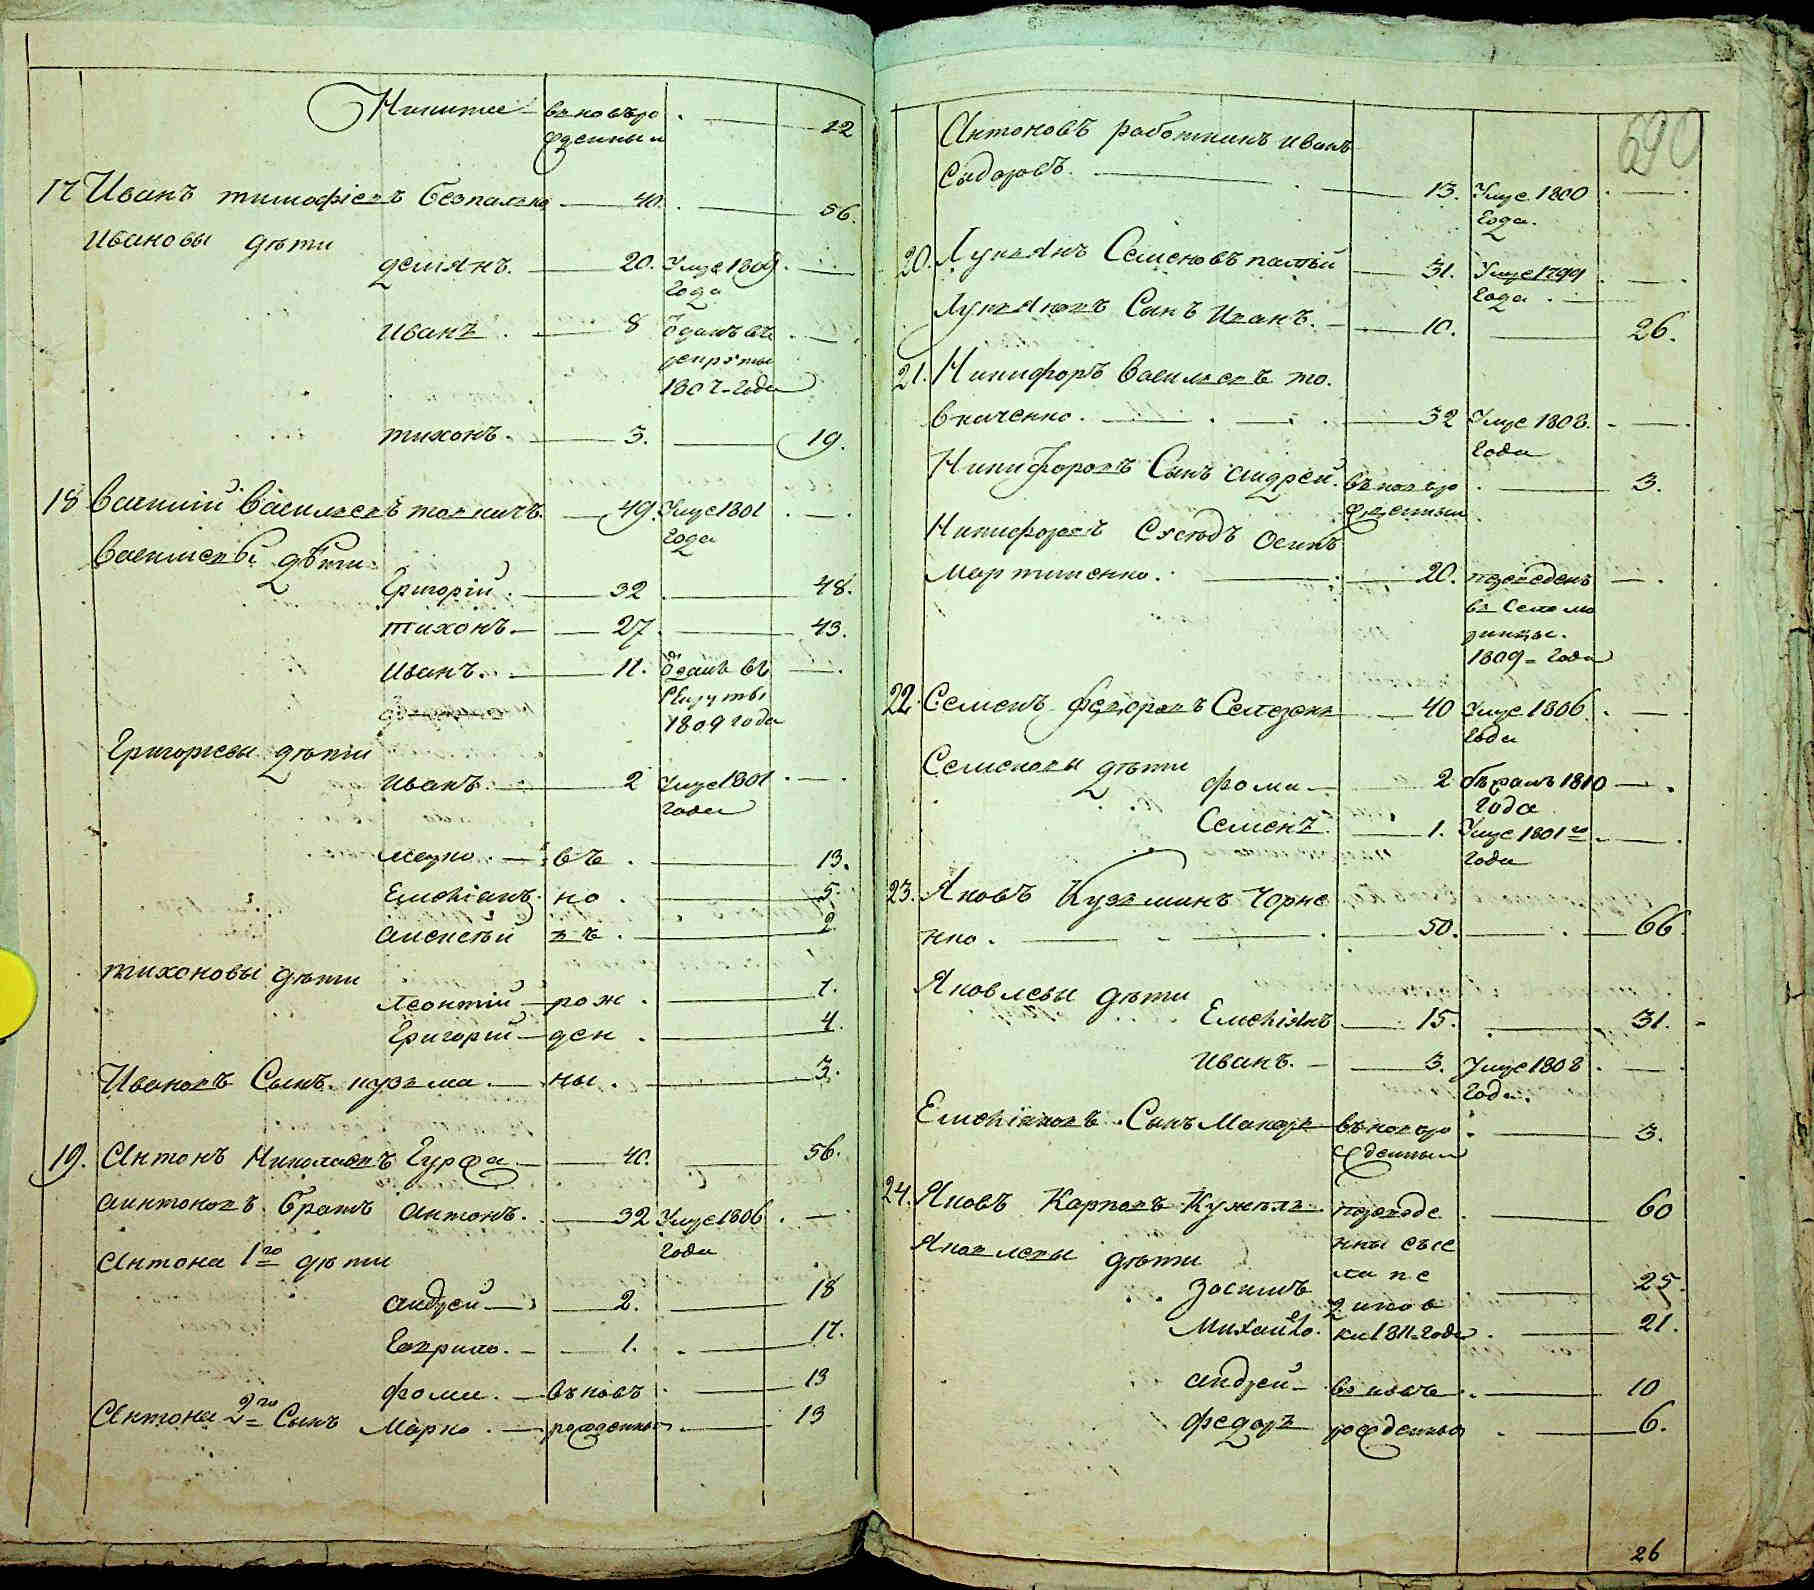 Никита въ новъро 12
жденныи
17 Иванъ тимофіевъ безпалько 40. 56.
Ивановы дѣти
демянъ. 20. Умре 1809
года
иванъ 8 Ѿданъ въ
рекруты
1807 года
тихонъ. 3. 19.
18 Василій Васильевъ товкачъ. 49. Умре 1801
года
Васильевы дѣти
Григорій. 32 48.
тихонъ 27 43.
иванъ. 11. Ѿданъ въ
рекруты
1809 года
Григорьевы дѣти
иванъ. 2 Умре 1801
года
въ 13.
Емеліанъ. но 5.
Алексѣй въ 2
тихоновы дѣти
Леонтій рож 7.
Григорій ден 4.
Ивановъ Сынъ кузьма ны 3.
19. Антонъ Николаевъ Гуржа 40. 56.
антоновъ братъ антонъ. 32 Умре 1806
года
Антона 1го дѣти
андрей 2. 18
Гаврило. 1. 17.
фома въ новъ 13
Антона 2го Сынъ Марко рожденныи 13
690
Антоновъ работникъ иванъ
Сидоровъ. 13. Умре 1800
года.
20. Лукьянъ Семеновъ 31. Умре 1799
года
Лукьяновъ Сынъ Иванъ. 10. 26.
21. Никифоръ васильевъ то.
вкаченко. 32 Умре 1808.
года
Никифоровъ Сынъ андрей. въ новъро 3.
жденныи
Никифоровъ осипъ
Мартиненко. 20. переведенъ
въ Село
1809 года
22. Семенъ федоровъ Селезень 40 Умре 1806
года
Семеновы дѣти
фома 2 бѣжалъ 1810
года
Семенъ 1. Умре 1801го
года
23. Яковъ Кузьминъ Чорне
нко. 50. 66.
Яковлевы дѣти
Емеліянъ 15. 31.
иванъ. 3. Умре 1808
года.
Емеліановъ Сынъ Макаръ въ новъро 3.
жденныи
24. Яковъ Карповъ Кужель переведе 60
Яковлевы дѣти нны съсе
ла пе
Зосимъ 25.
Михайло. ки 1811 года 21.
андрей въ новъ 10
федоръ рожденныи 6.
26